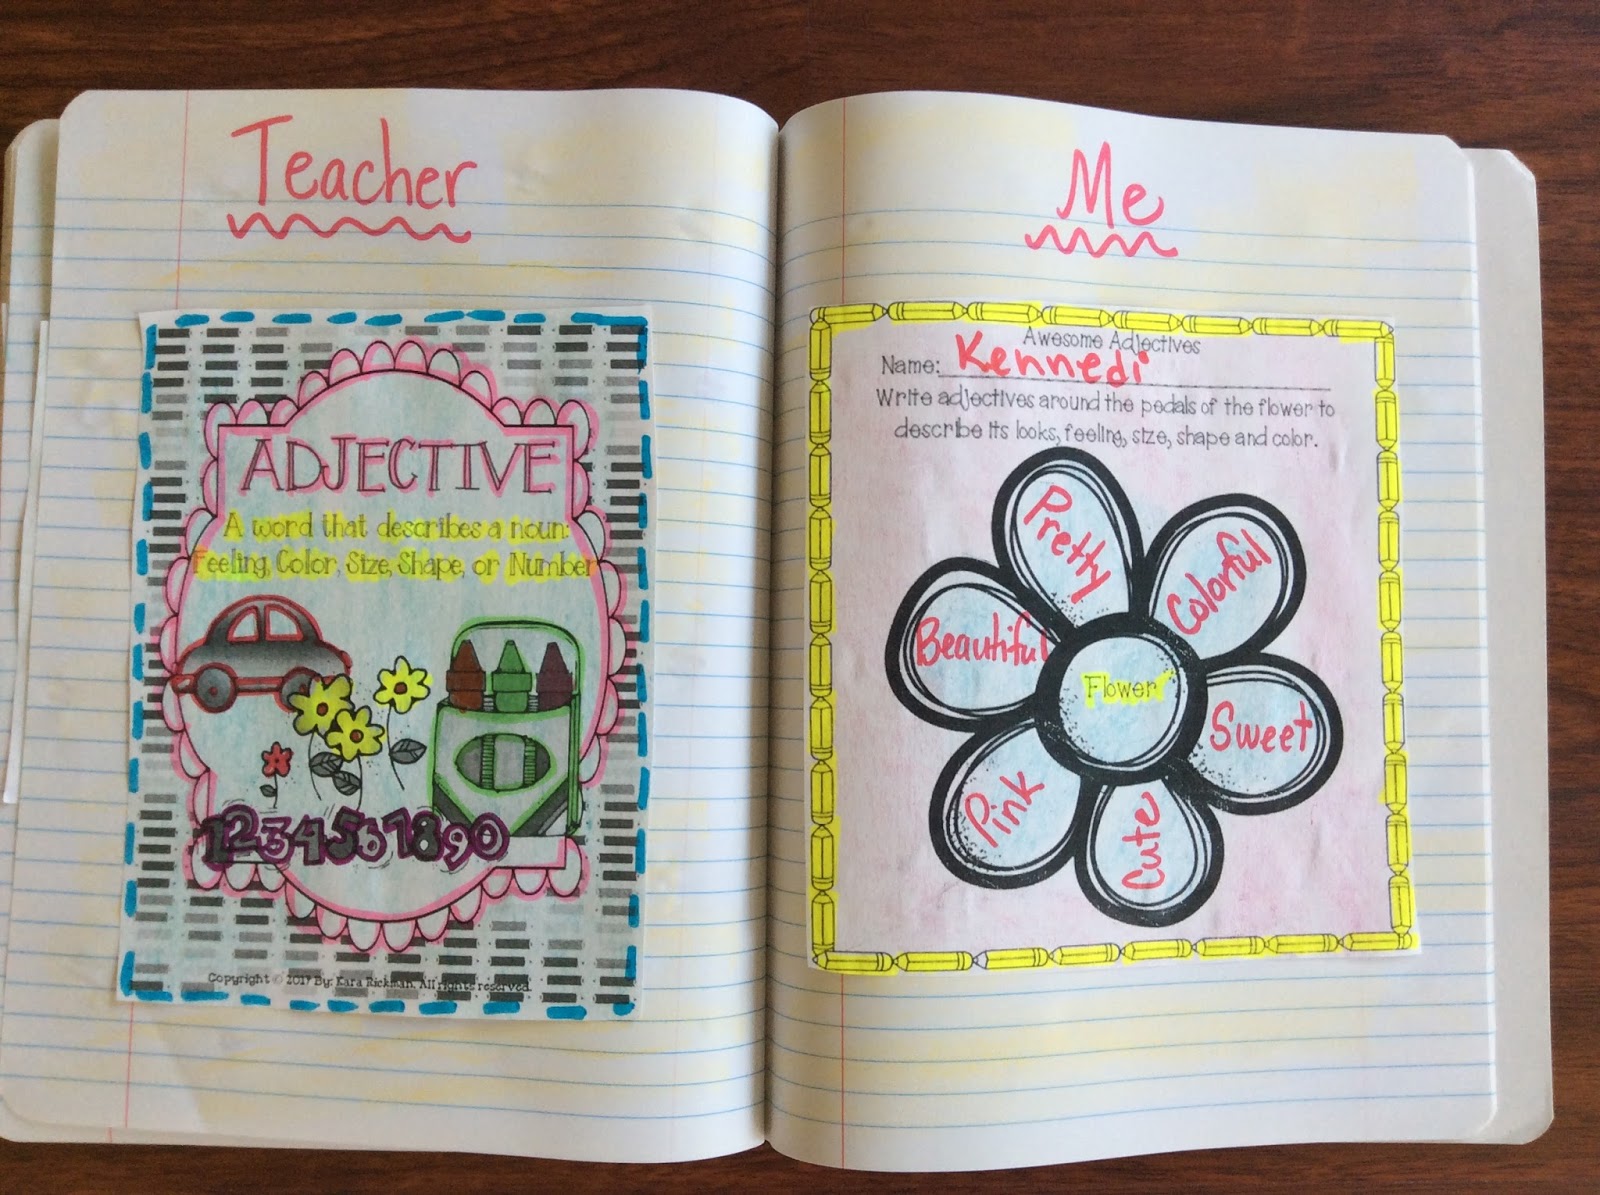 Teacher
ADJECTIVE
A word that describes a noun:
Feeling, Color, Size, Shape, or Number
1234567890
Copyright © 2017 By: Kara Rickman. All rights reserved.
Me
Awesome Adjectives
Name: Kennedi
Write adjectives around the pedals of the flower to
describe its looks, feeling, size, shape and color.
Pretty
Colorful
Beautiful
Flower
Sweet
Pink
Cute